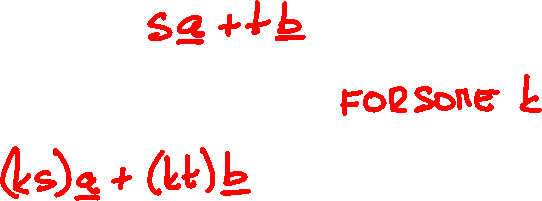 sa + tb
FOR SOME k
(ks)a + (kt)b